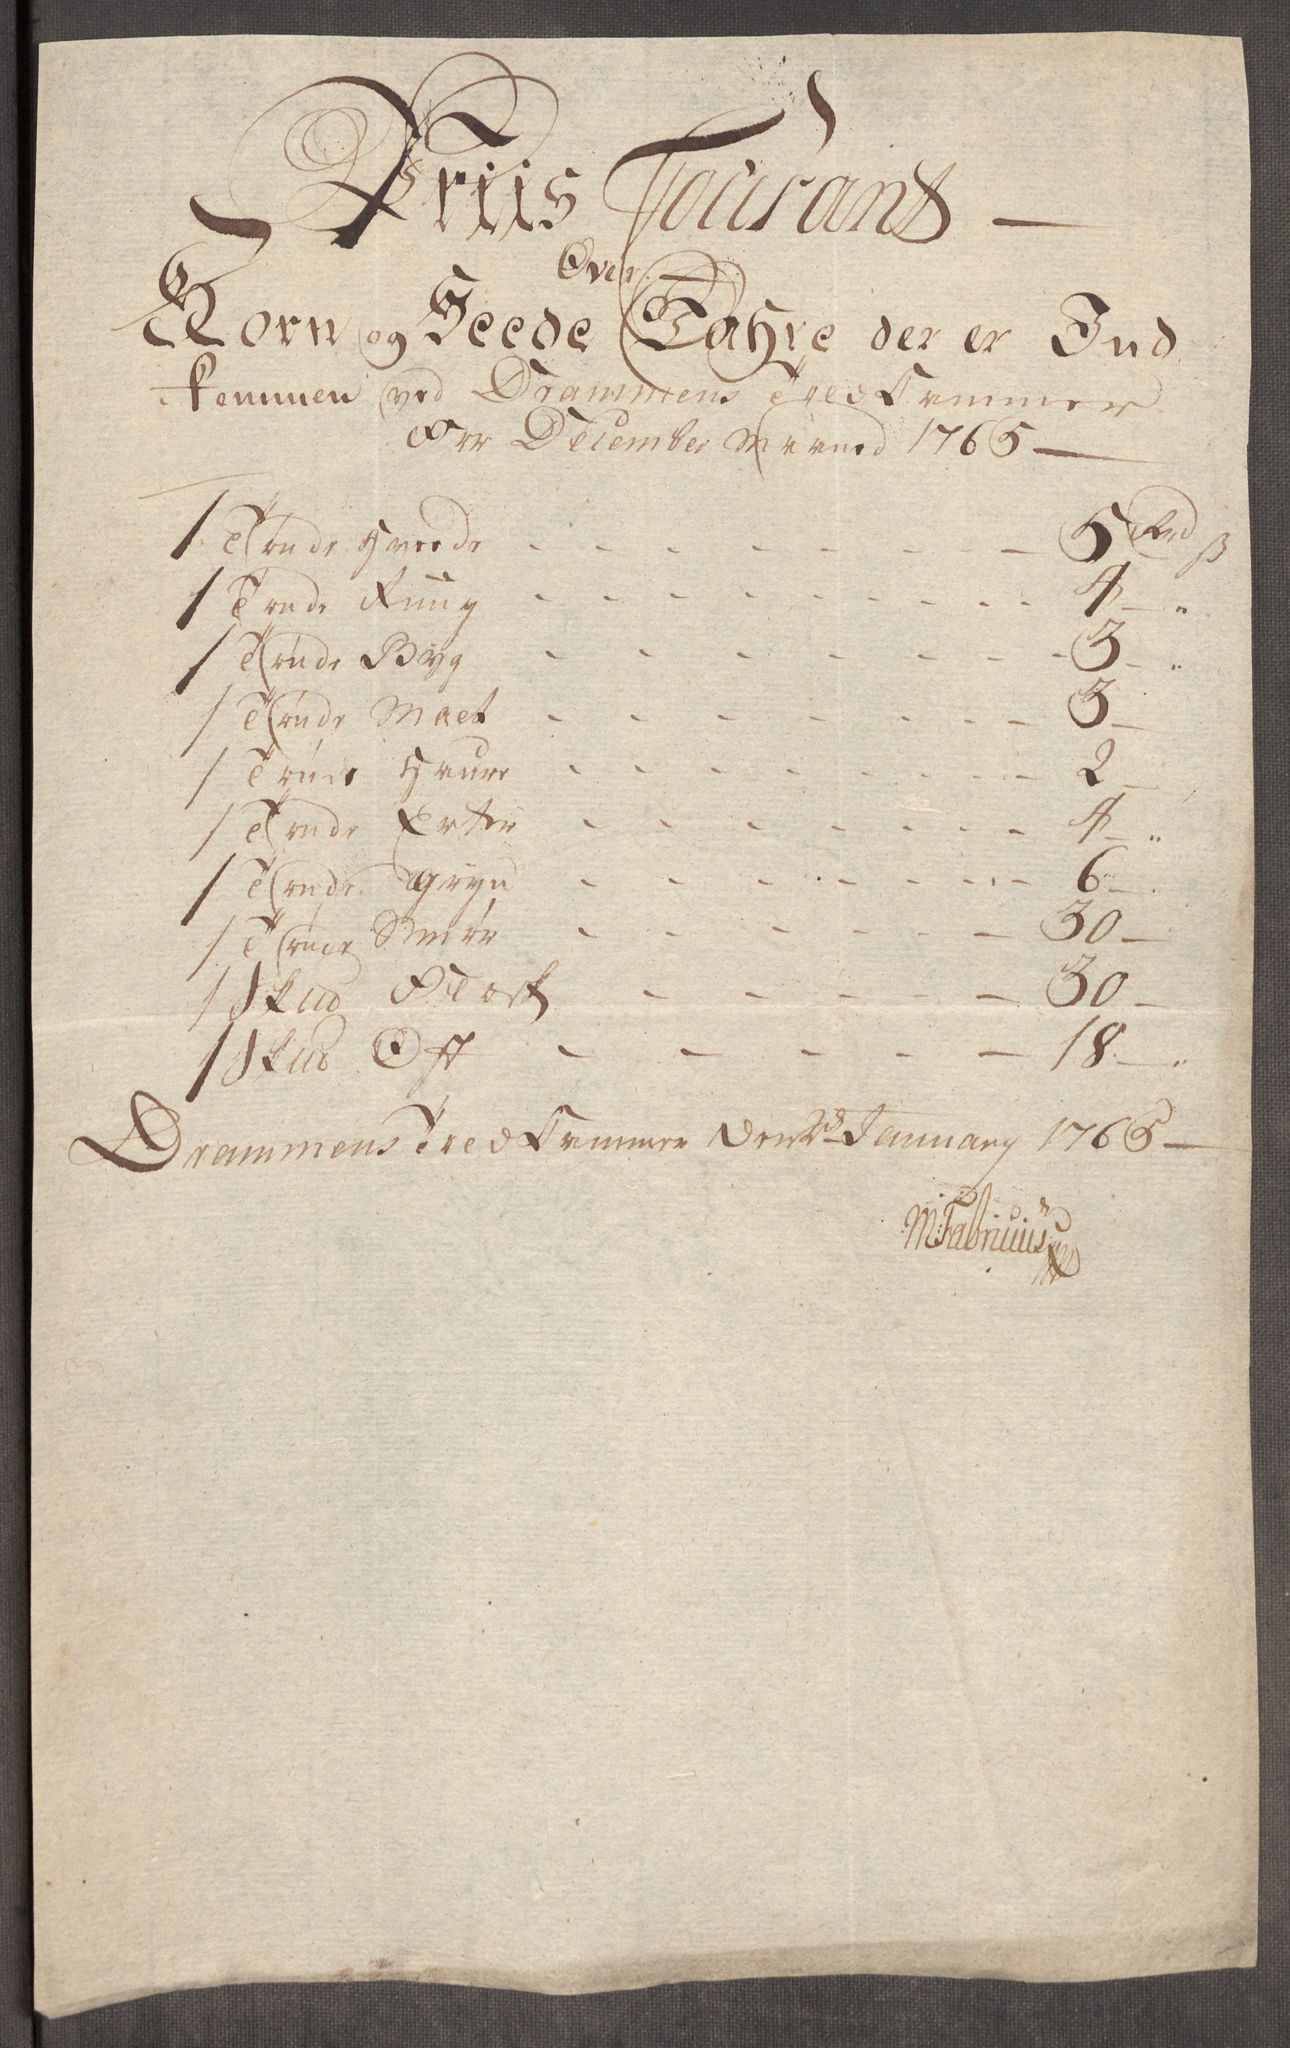 Priis Courant —
Over
Korn og Feede Vahre der er Ind
kommen ved Drammens Told Cammer
For December Maaned 1765 —
1 Tønde Hvede - - - - - - - 5 Rd ß
1 Tønde Ruug - - - - - - - 4 — "
1 Tønde Byg - - - - - - - 3 — "
1 Tønde Malt - - - - - - - 3 —
1 Tønde Haure - - - - - - - 2 —
1 Tønde Erter - - - - - - - 4 — "
1 Tønde Gryn - - - - - - - 6 —
1 Tønde Smør - - - - - - - 30 —
1 Skud Flesk - - - - - 30 —
1 Skud Ost - - - - - 18 — "
Drammens Told Cammer den January 1765 —
M: Fabritius